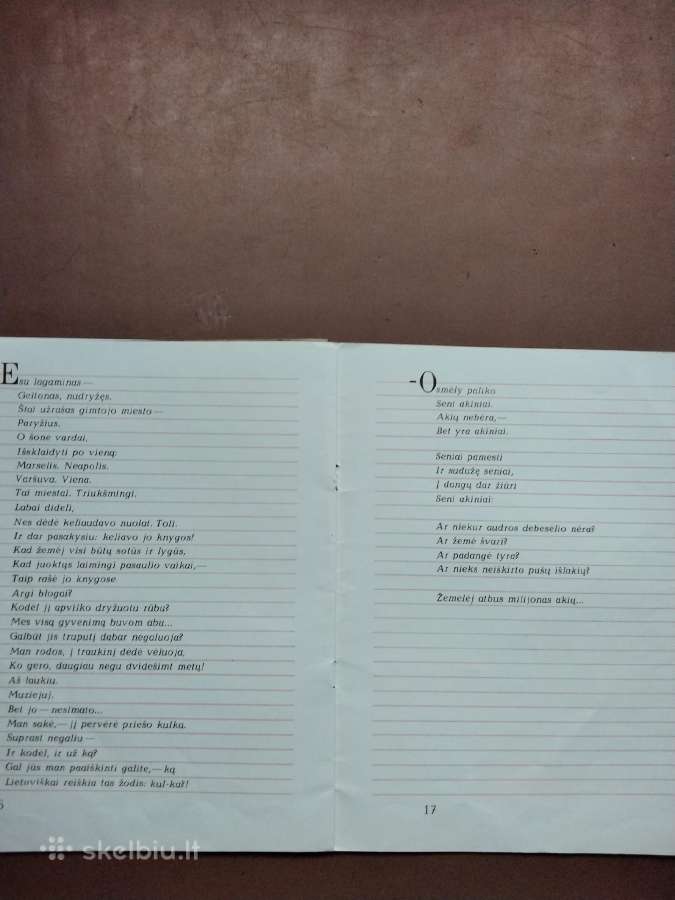 Esu lagaminas —
Geltonas, nudryžęs.
Štai užrašas gimtojo miesto —
Paryžius.
O šone vardai,
Išsklaidyti po vieną:
Marselis. Neapolis.
Varšuva. Viena.
Tai miestai. Triukšmingi.
Labai dideli,
Nes dėdė keliaudavo nuolat. Toli.
Ir dar pasakysiu: keliavo jo knygos!
Kad žemėj visi būtų sotūs ir lygūs,
Kad juoktųs laimingi pasaulio vaikai,—
Taip rašė jo knygose
Argi blogai?
Kodėl jį apvilko dryžuotu rūbu?
Mes visą gyvenimą buvom abu...
Galbūt jis truputį dabar negaluoja?
Man rodos, į traukinį dėdė vėluoja,
Ko gero, daugiau negu dvidešimt metų!
Aš laukiu.
Muziejuj.
Bet jo — nesimato...
Man sakė,— jį pervėrė priešo kulka.
Suprast negaliu —
Ir kodėl, ir už ką?
Gal jūs man paaiškinti galite,— ką
Lietuviškai reiškia tas žodis: kul-ka?!
6
-Osmėly paliko
Seni akiniai.
Akių nebėra,—
Bet yra akiniai.
Seniai pamesti
Ir sudužę seniai,
Į dangų dar žiūri
Seni akiniai:
Ar niekur audros debesėlio nėra?
Ar žemė švari?
Ar padangė tyra?
Ar nieks neiškirto pušų išlakių?
Žemelėj atbus milijonas akių...
17
skelbiu.lt